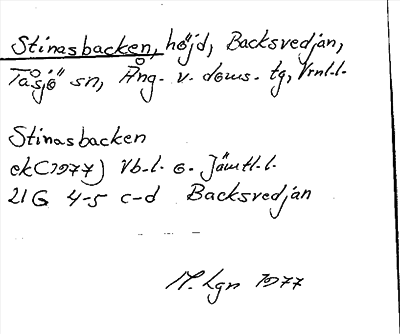 Stinasbacken, höjd, Backsvedjan,
Tåsjö sn, Ång. v. doms. tg, Vrnl.l.
Stinasbacken
ek(1977) Vb.l. o. Jämtl.l.
21G 4-5 c-d Backsvedjan
M. Lgn 1977